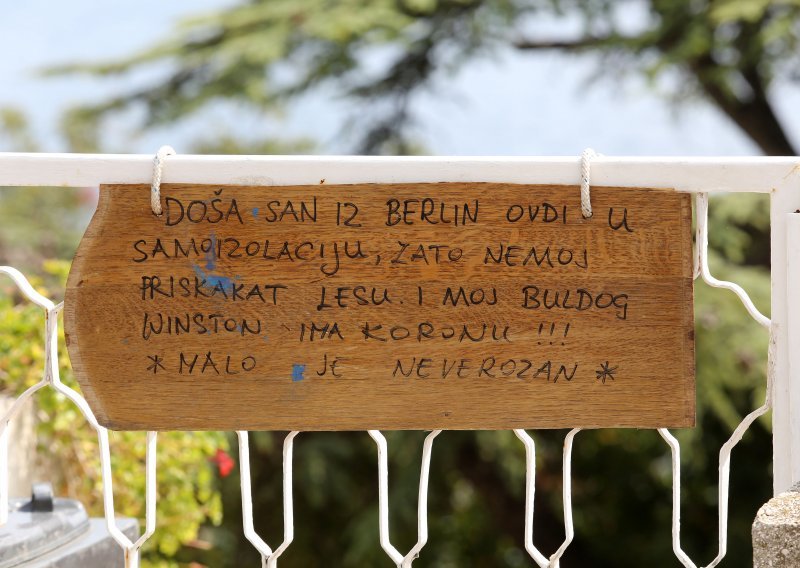 DOŠA SAN IZ BERLIN OVDI U
SAMOIZOLACIJU, ZATO NEMOJ
PRISKAKAT LESU. I MOJ BULDOG
WINSTON IMA KORONU !!!
*MALO JE NEVEROZAN*